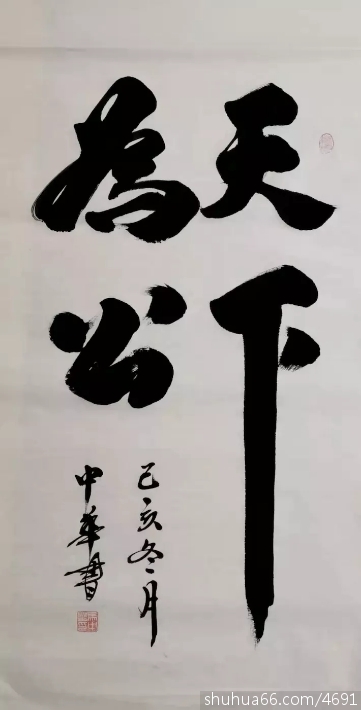 天下
為公
己亥冬月
中華書
shuhua66.com/4691